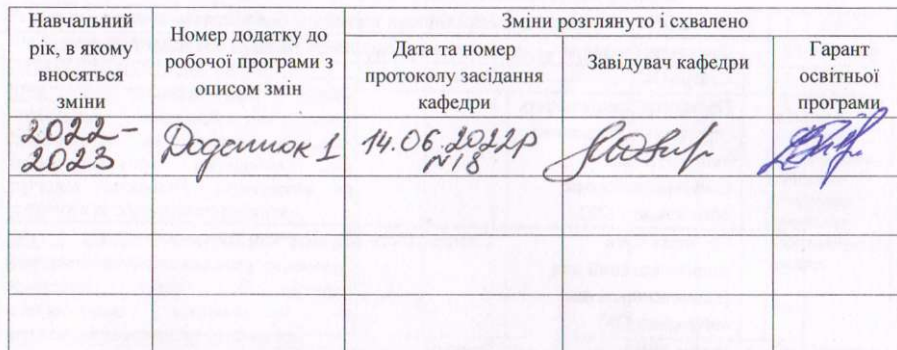 Навчальний
рік, в якому
вносяться
зміни
Номер додатку до
робочої програми з
описом змін
Зміни розглянуто і схвалено
Дата та номер
протоколу засідання
кафедри
Завідувач кафедри
Гарант
освітньої
програми
2022-
2023
Додаток 1
14.06.2022р
№18